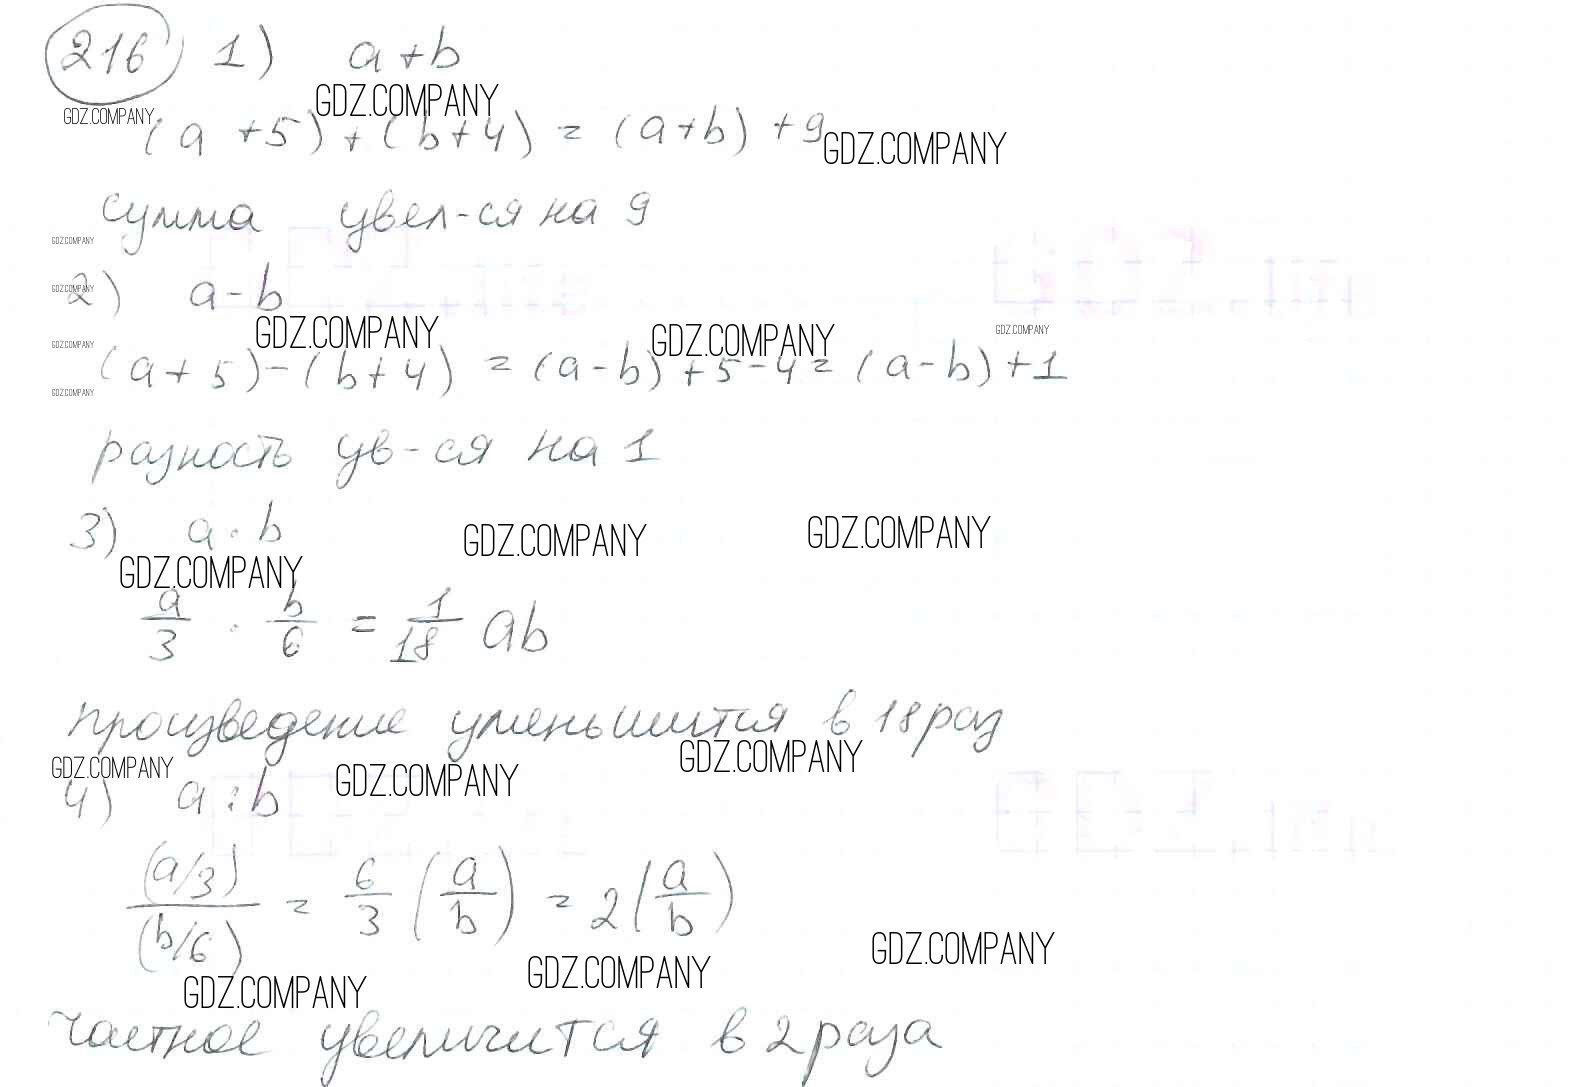 216 1) a+b
GDZ.COMPANY
GDZ.COMPANY
(a +5)+(b+4) = (a+b) +9
GDZ.COMPANY
сумма увел-ся на 9
GDZ.COMPANY
2) a-b
GDZ.COMPANY
GDZ.COMPANY
GDZ.COMPANY
GDZ.COMPANY
GDZ.COMPANY
(a+5)-(b+4) = (a-b)+5-4= (a-b)+1
GDZ.COMPANY
разность ув-ся на 1
3) a·b
GDZ.COMPANY
GDZ.COMPANY
GDZ.COMPANY
a/3 · b/6 = 1/18 ab
произведение уменьшится в 18 раз
GDZ.COMPANY
GDZ.COMPANY
GDZ.COMPANY
4) a:b
(a/3)/(b/6) = 6/3 (a/b) = 2(a/b)
GDZ.COMPANY
GDZ.COMPANY
GDZ.COMPANY
частное увеличится в 2 раза